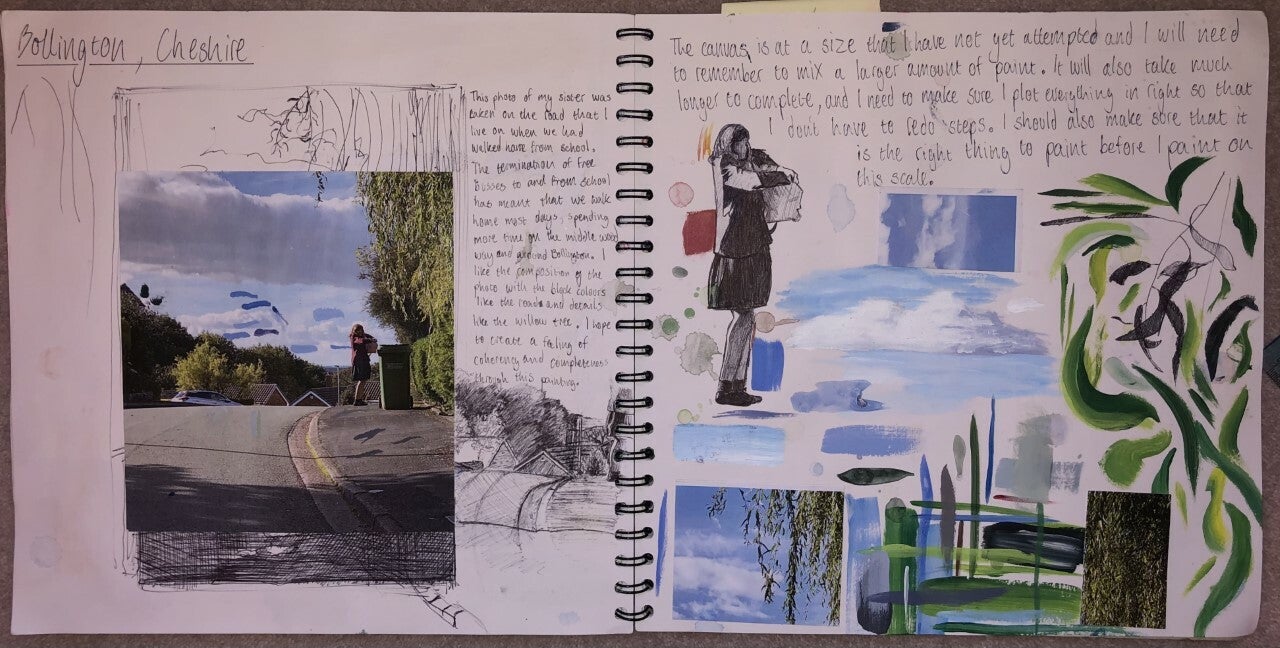 Bollington, Cheshire
This photo of my sister was
taken on the road that I
live on when we had
walked home from school.
The termination of free
busses to and from school
has meant that we walk
home most days, spending
more time on the middle wood
way and around Bollington. I
like the composition of the
photo with the block colours
like the road and details
like the willow tree. I hope
to create a feeling of
coherency and completeness
through this painting.
The canvas is at a size that I have not yet attempted and I will need
to remember to mix a larger amount of paint. It will also take much
longer to complete, and I need to make sure I plot everything in right so that
I don't have to redo steps. I should also make sure that it
is the right thing to paint before I paint on
this scale.